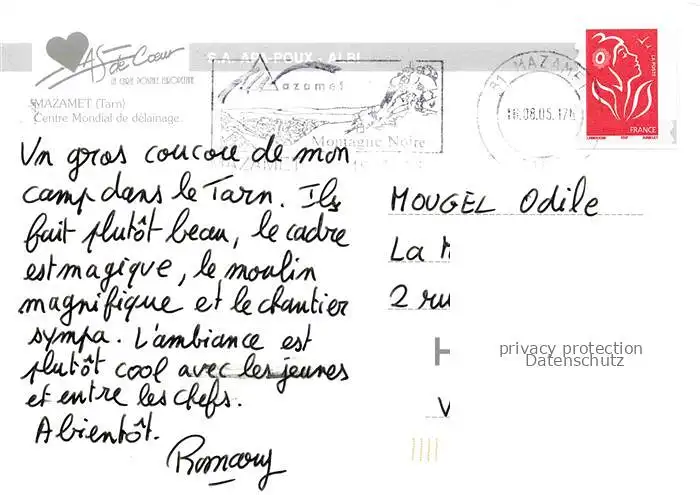 AS de Cœur
LA CARTE POSTALE EUROPEENNE
MAZAMET (Tarn)
Centre Mondial de délainage.
S.A. APA-POUX - ALBI
Mazamet
Montagne Noire
81 MAZAMET
16.08.05.17H
LA POSTE
FRANCE
Un gros coucou de mon
camp dans le Tarn. Ils
fait plutôt beau, le cadre
est magique, le moulin
magnifique et le chantier
sympa. L'ambiance est
plutôt cool avec les jeunes
et entre les chefs.
A bientôt.
Romary
MOUGEL Odile
La
2 ru
H
V
privacy protection
Datenschutz